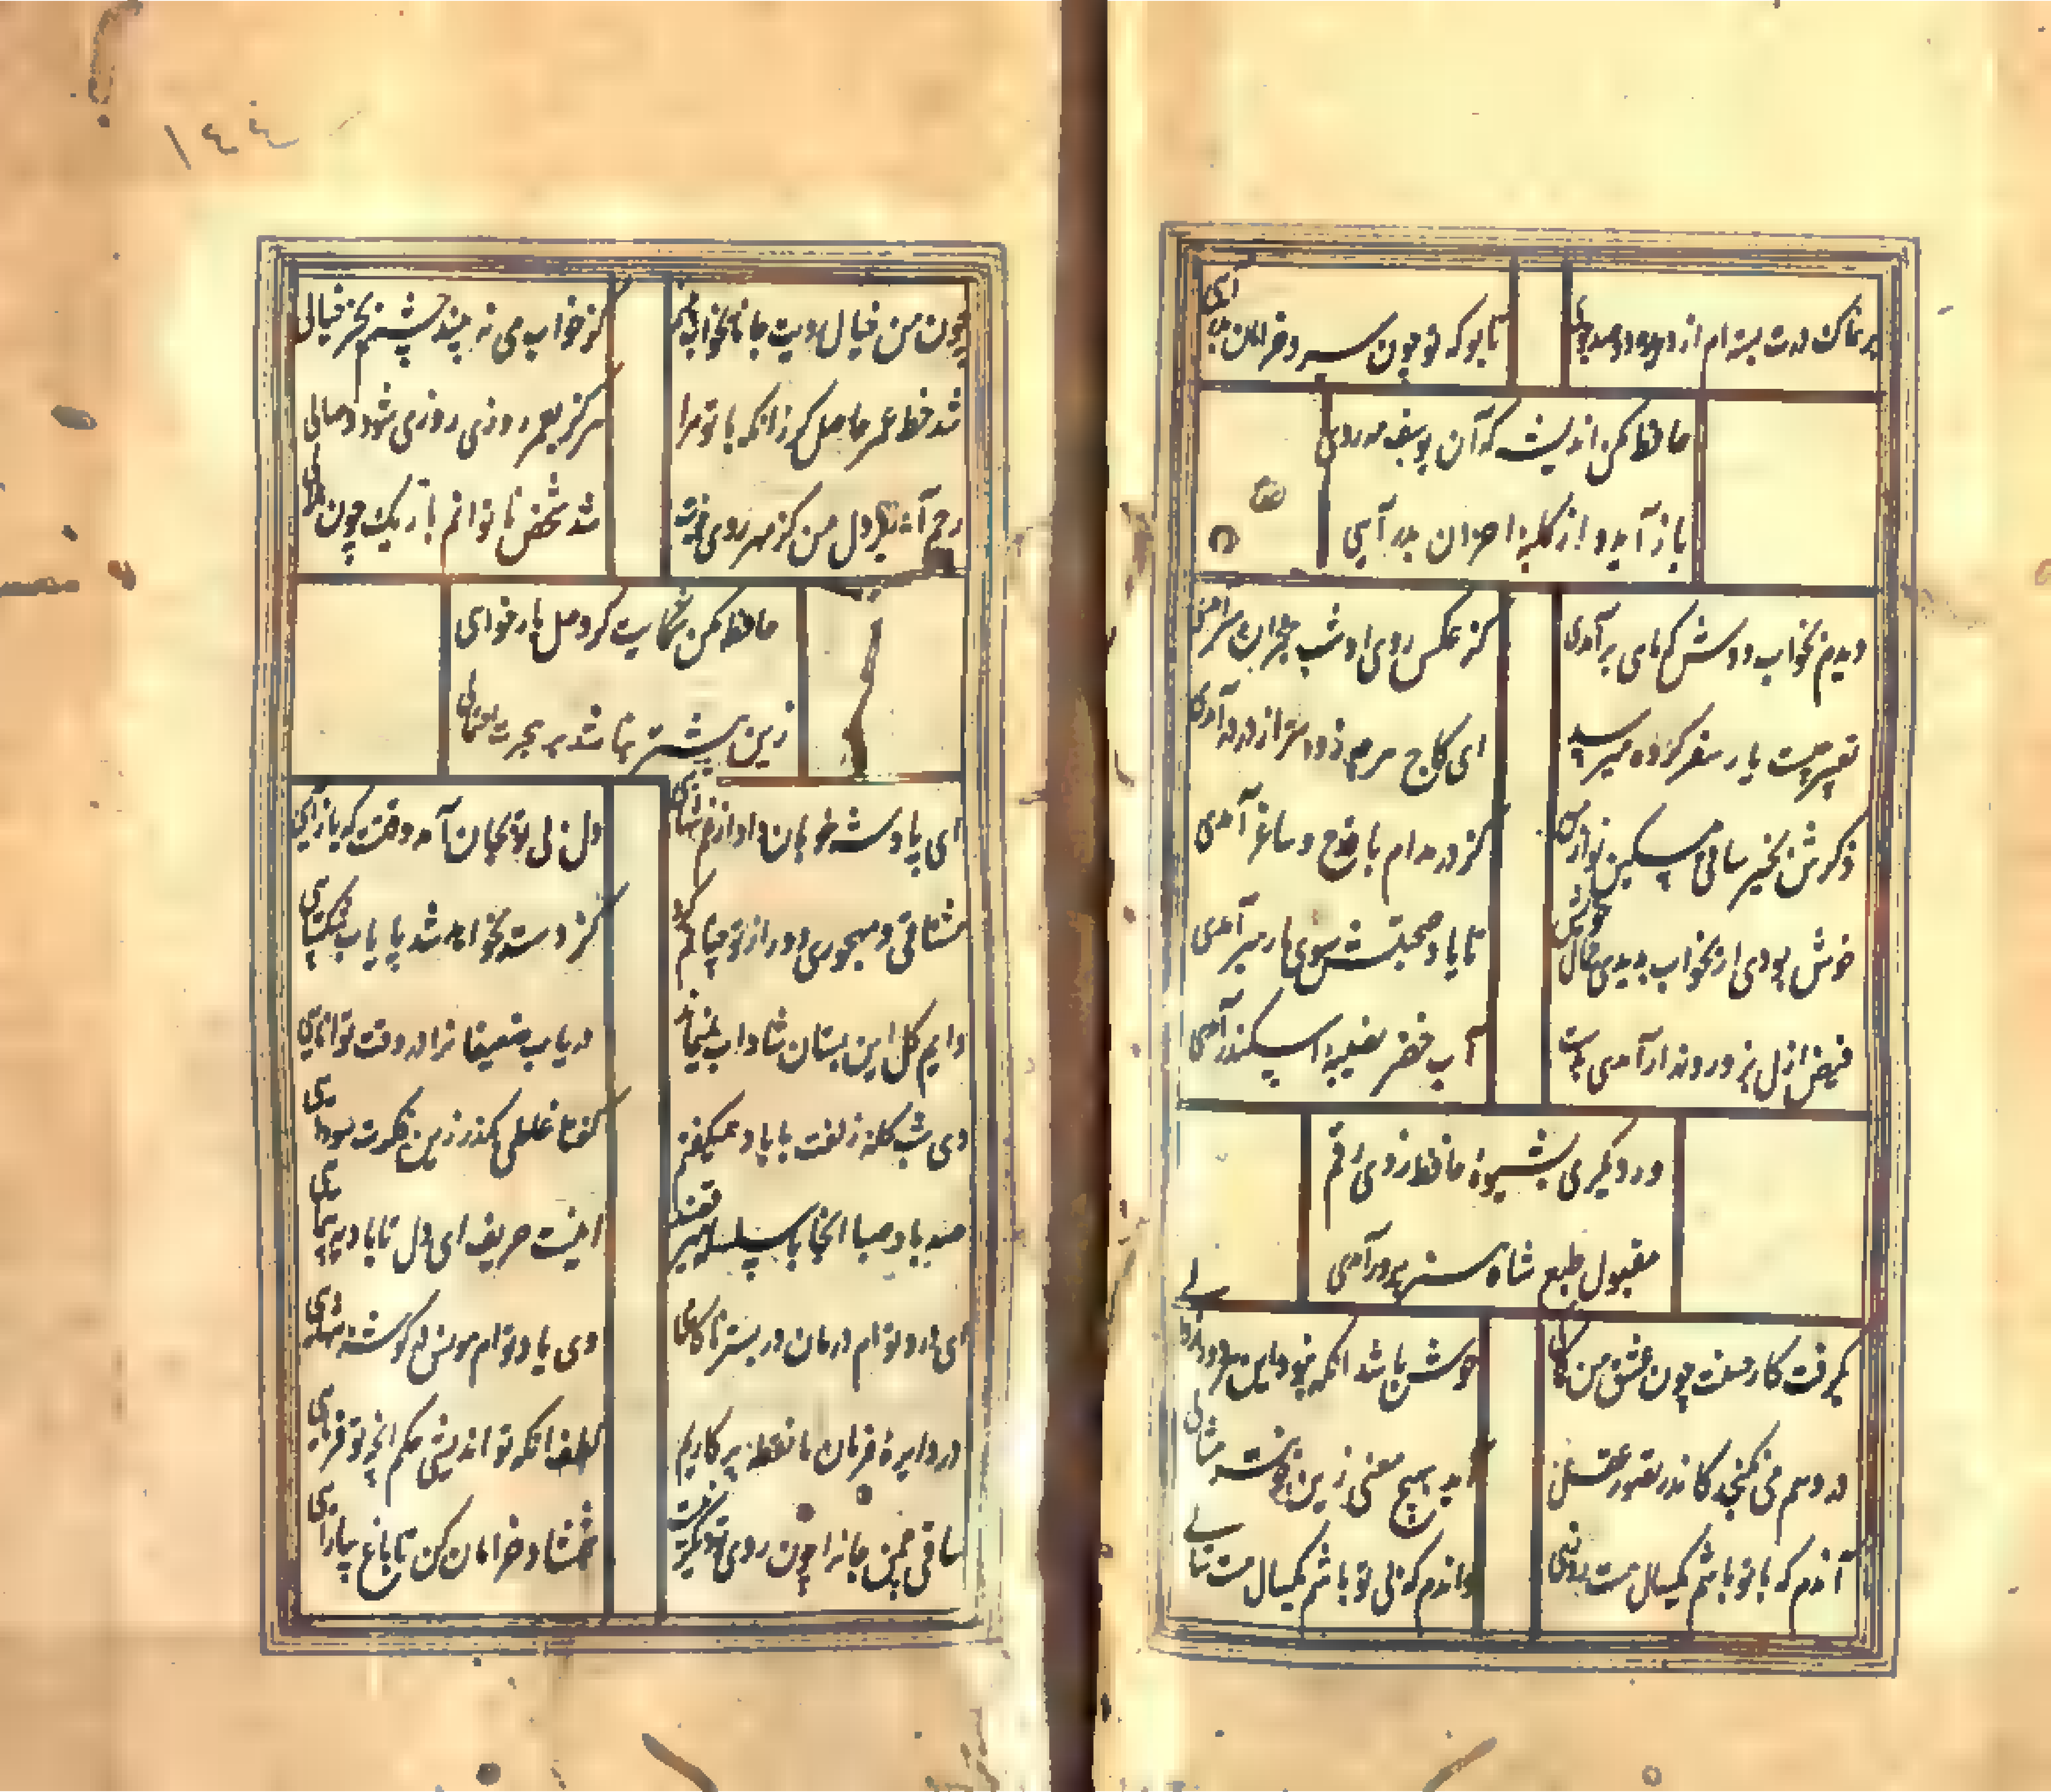 بر خاک درت بسته ام از دیده دو صد جوی
تا بو که تو چون سرو خرامان بدر آیی
حافظ مکن اندیشه که آن یوسف مه روی
باز آید و از کلبه احزان بدر آیی
دیدم بخواب دوش که ماهی برآمدی
کز عکس روی او شب هجران سر آمدی
تعبیر چیست یار سفر کرده میرسد
ای کاج هر چه زودتر از در درآمدی
ذکرش بخیر ساقی مسکین نواز من
کز در مدام با قدح و ساغر آمدی
خوش بودی ار بخواب بدیدی جمال خویش
تا یاد صحبتش سوی ما رهبر آمدی
فیض ازل بزور و زر ار آمدی بدست
آب خضر نصیبه اسکندر آمدی
ور دیگری بشیوه حافظ زدی رقم
مقبول طبع شاه سخن پرور آمدی
بگرفت کار حسنت چون عشق من کمالی
خوش باش زانکه نبود این هر دو را زوالی
در وهم می نگنجد کاندر تصور عقل
آید بهیچ معنی زین خوبتر مثالی
آندم که با تو باشم یکسال هست روزی
واندم که بی تو باشم یکسال هست سالی
چون من خیال رویت جانا بخواب بینم
کز خواب می نه بیند چشمم بجز خیالی
شد حظ عمر حاصل گر زانکه با تو ما را
هرگز بعمر روزی روزی شود وصالی
رحم آر بر دل من کز مهر روی خوبت
شد شخص ناتوانم باریک چون هلالی
حافظ مکن شکایت گر وصل یار خواهی
زین بیشتر بباید بر هجرت احتمالی
ای پادشه خوبان داد از غم تنهایی
دل بی تو بجان آمد وقتست که بازآیی
مشتاقی و مهجوری دور از تو چنانم کرد
کز دست بخواهد شد پایاب شکیبایی
دایم گل این بستان شاداب نمیماند
دریاب ضعیفان را در وقت توانایی
دی شب گله زلفت با باد همیگفتم
گفتا غلطی بگذر زین فکرت سودایی
صد باد صبا اینجا با سلسله میرقصند
اینست حریف ای دل تا باد نپیمایی
ای درد توام درمان در بستر ناکامی
وی یاد توام مونس در گوشه تنهایی
در دایره فرمان ما نقطه پرگاریم
لطف آنکه تو اندیشی حکم آنچه تو فرمایی
ساقی چمن جانرا چون روی تو رنگی نیست
شمشاد خرامان کن تا باغ بیارایی
١٤٤